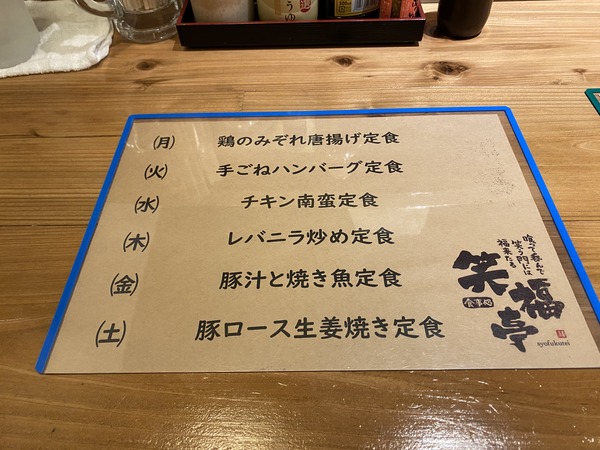 (月) 鶏のみぞれ唐揚げ定食
(火) 手ごねハンバーグ定食
(水) チキン南蛮定食
(木) レバニラ炒め定食
(金) 豚汁と焼き魚定食
(土) 豚ロース生姜焼き定食
喰って呑んで
笑う門には
福来たる
食事処
笑福亭
syofukutei